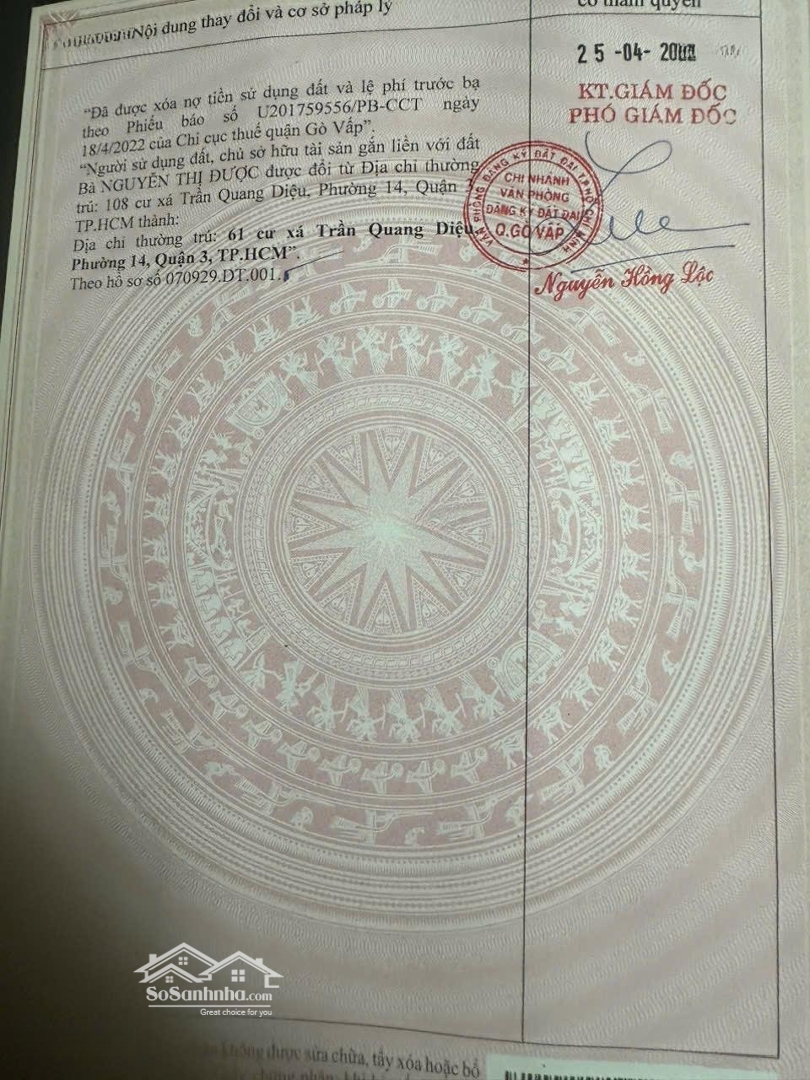 Nội dung thay đổi và cơ sở pháp lý
có thẩm quyền
"Đã được xóa nợ tiền sử dụng đất và lệ phí trước bạ
theo Phiếu báo số U201759556/PB-CCT ngày
18/4/2022 của Chi cục thuế quận Gò Vấp".
"Người sử dụng đất, chủ sở hữu tài sản gắn liền với đất
Bà NGUYỄN THỊ ĐƯỢC được đổi từ Địa chỉ thường
trú: 108 cư xá Trần Quang Diệu, Phường 14, Quận 3
TP.HCM thành:
Địa chỉ thường trú: 61 cư xá Trần Quang Diệu,
Phường 14, Quận 3, TP.HCM".
Theo hồ sơ số 070929.DT.001.
25-04-
KT.GIÁM ĐỐC
PHÓ GIÁM ĐỐC
VĂN PHÒNG ĐĂNG KÝ ĐẤT ĐAI
CHI NHÁNH
VĂN PHÒNG
ĐĂNG KÝ ĐẤT ĐAI
Q.GÒ VẤP
Nguyễn Hồng Lộc
SoSanhnha.com
Great choice for you
không được sửa chữa, tẩy xóa hoặc bổ